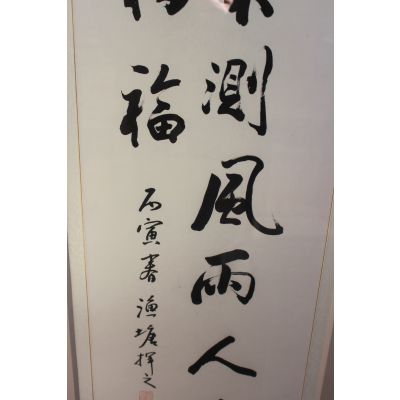 測風雨人
福
丙寅春漁塘揮之